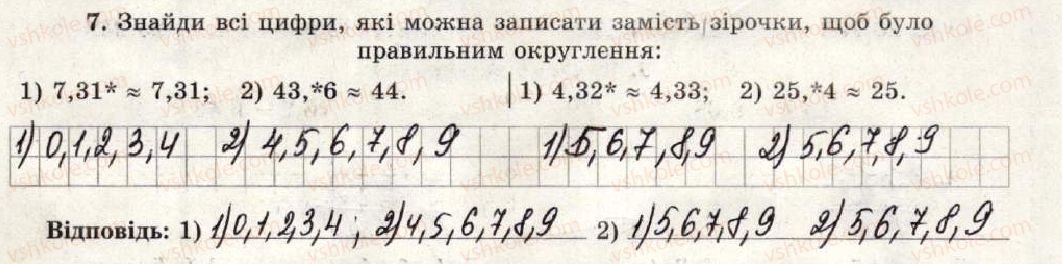 7. Знайди всі цифри, які можна записати замість зірочки, щоб було
правильним округлення:
1) 7,31* ≈ 7,31; 2) 43,*6 ≈ 44. 1) 4,32* ≈ 4,33; 2) 25,*4 ≈ 25.
1) 0,1,2,3,4 2) 4,5,6,7,8,9 1) 5,6,7,8,9 2) 5,6,7,8,9
Відповідь: 1) 1) 0,1,2,3,4; 2) 4,5,6,7,8,9 2) 1) 5,6,7,8,9 2) 5,6,7,8,9